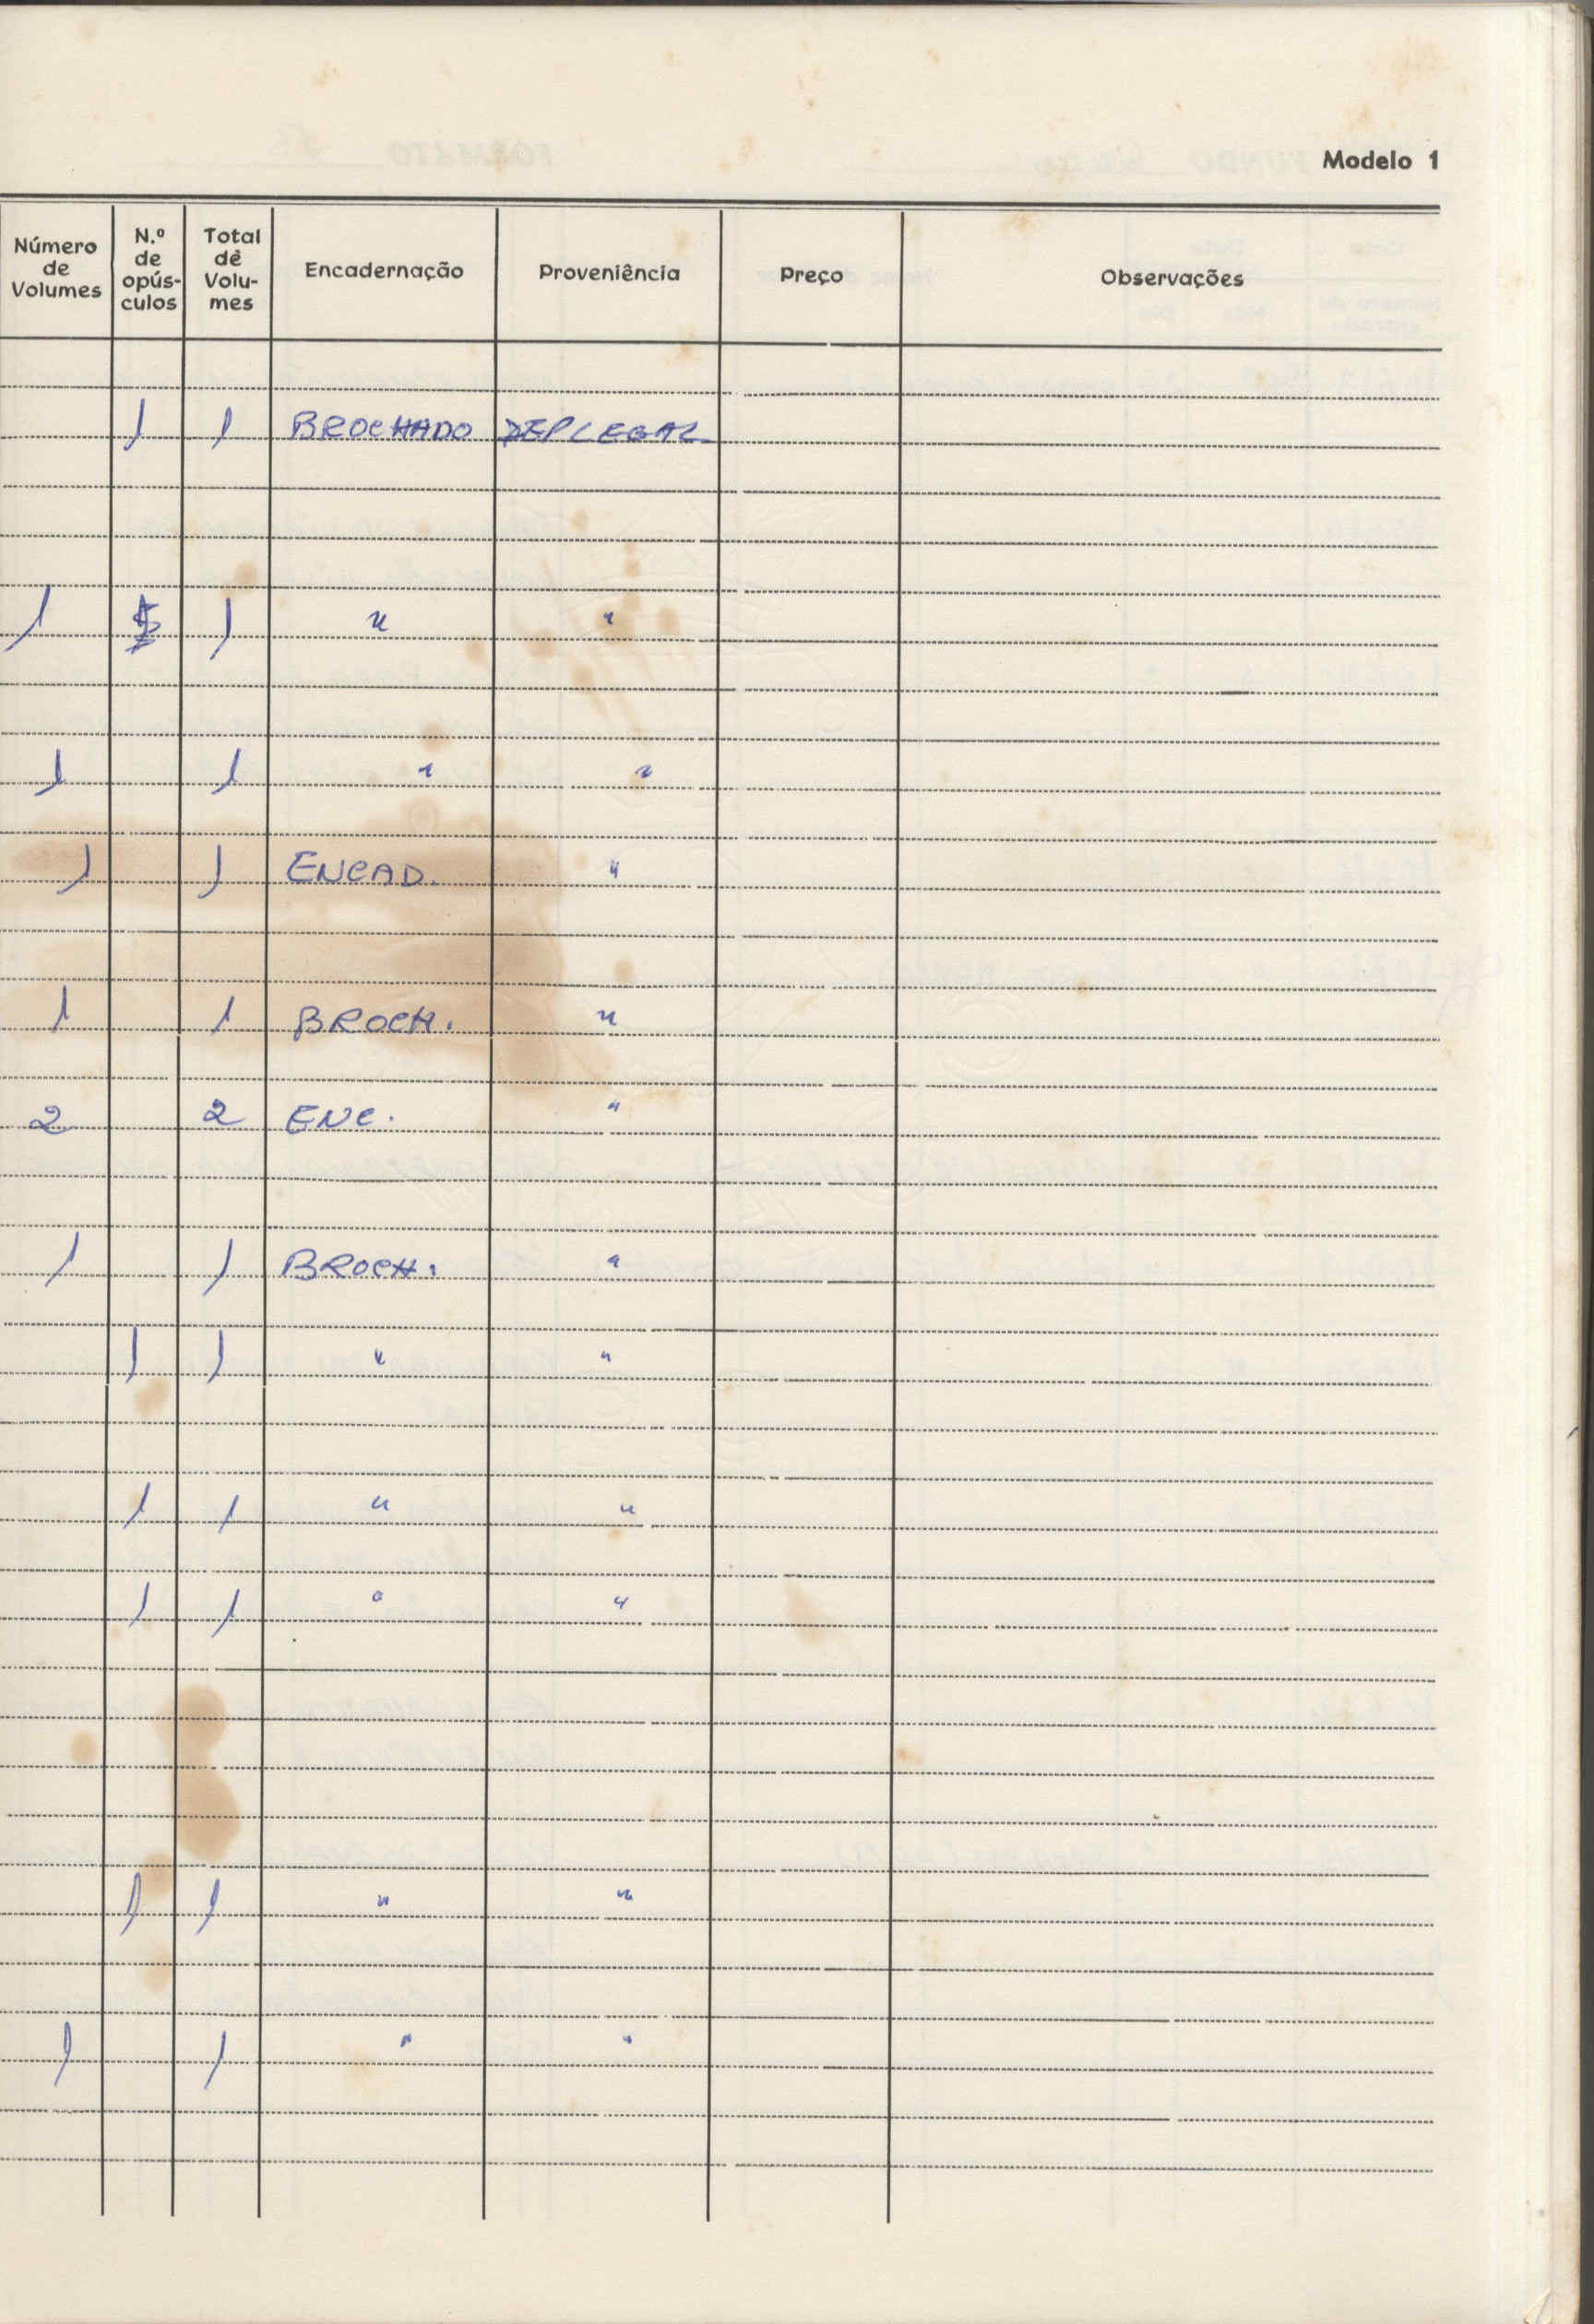 Modelo 1
Número de Volumes N.º de opús-culos Total dê Volu-mes Encadernação Proveniência Preço Observações
1 1 BROCHADO DEP LEGAL
1 1 " "
1 1 " "
1 1 ENCAD. "
1 1 BROCH. "
2 2 ENC. "
1 1 BROCH. "
1 1 " "
1 1 " "
1 1 " "
1 1 " "
1 1 " "